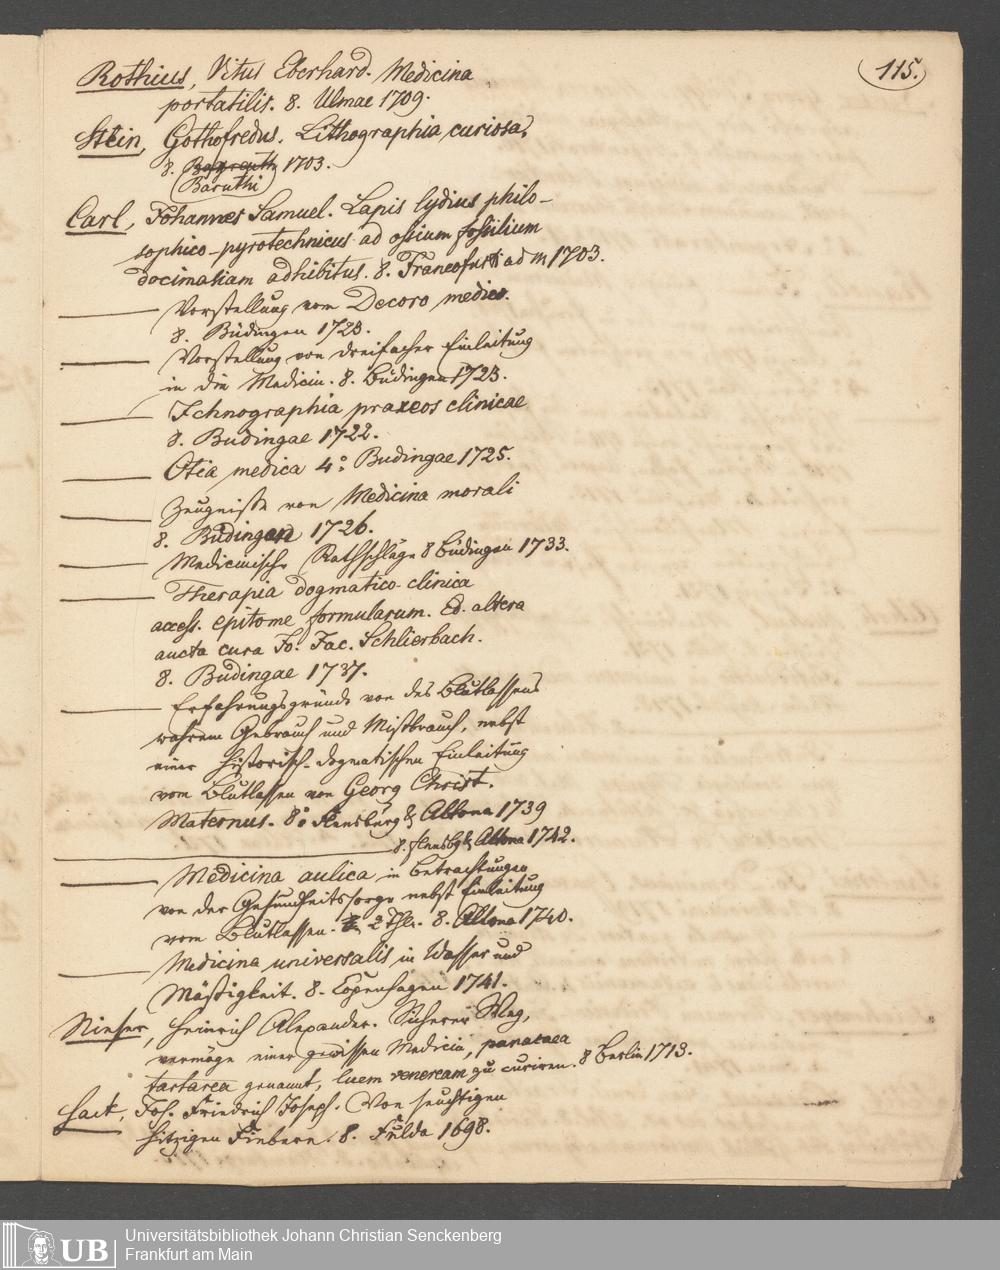 115.
Rothius, Vitus Eberhard. Medicina
portatilis. 8. Ulmae 1709.
Stein, Gothofredus. Lithographia curiosa,
8. Bayreuth 1703.
Baruthi
Carl, Johannes Samuel. Lapis lydius philo-
sophico-pyrotechnicus ad ossium fossilium
docimasiam adhibitus. 8. Francofurti ad M 1703.
Vorstellung vom Decoro medico.
8. Büdingen 1723.
Vorstellung von dreifacher Einleitung
in die Medicin. 8. Büdingen 1723.
Ichnographia praxeos clinicae
8. Budingae 1722.
Otia medica 4° Budingae 1725.
Zeugnisse von Medicina morali
8. Büdingen 1726.
Medicinische Rathschläge 8 Büdingen 1733.
Therapia dogmatico-clinica
access. epitome formularum. Ed. altera
aucta cura Jo. Jac. Schlierbach.
8. Budingae 1737.
Erfahrungsgründe von des Blutlassens
wahrem Gebrauch und Missbrauch, nebst
einer historisch-dogmatischen Einleitung
vom Blutlassen von Georg Christ.
Maternus. 8° Flensburg & Altona 1739
8. Flensbg & Altona 1742.
Medicina aulica in Betrachtungen
von der Gesundheitssorge nebst Einleitung
vom Blutlassen. 2 Thl. 8. Altona 1740.
Medicina universalis in Wasser und
Mässigkeit. 8. Copenhagen 1741.
Heinrich Alexander. Sicherer Weg,
vermöge einer gewissen Medicin, panacaea
tartarea genannt, luem veneream zu curiren. 8 Berlin 1713.
Hack, Joh. Friedrich Joseph. Von feuchtigen
hitzigen Fiebern. 8. Fulda 1698.
UB
Universitätsbibliothek Johann Christian Senckenberg
Frankfurt am Main